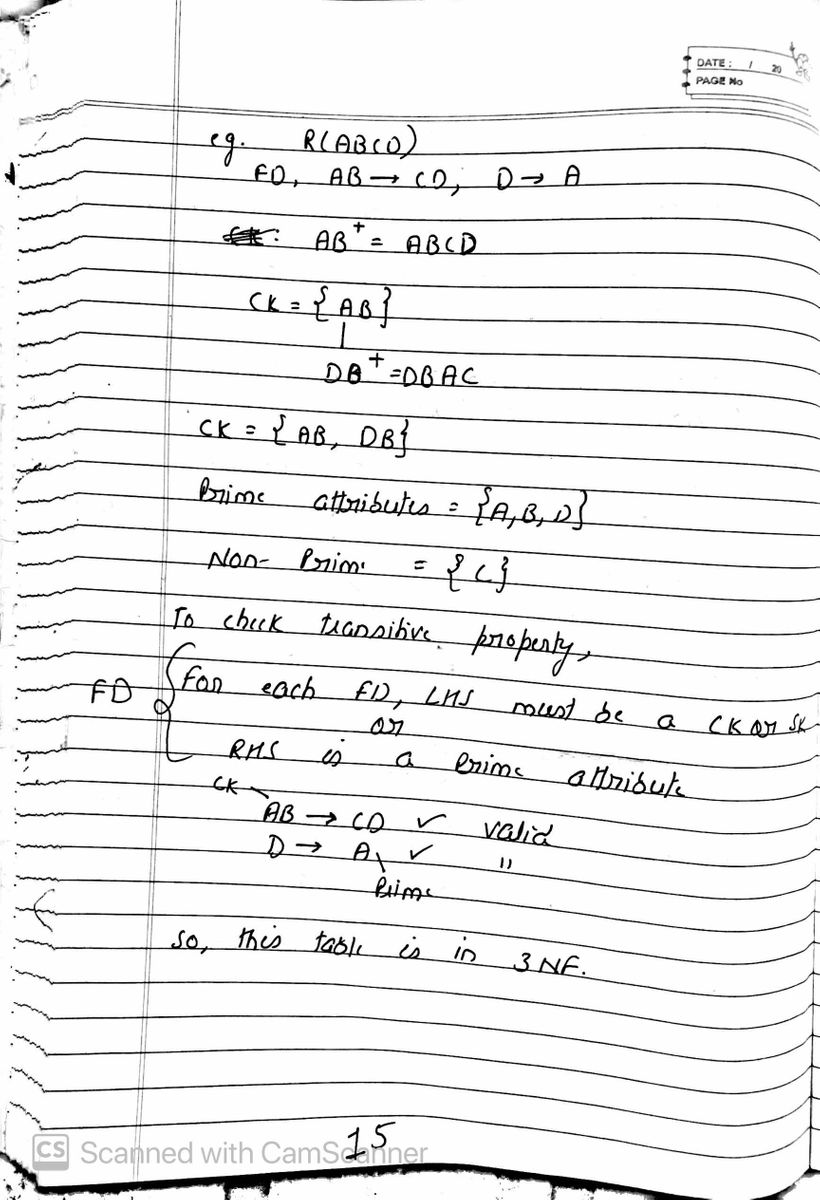 DATE: / 20
PAGE No
eg. R(ABCD)
FD, AB → CD, D → A
AB⁺ = ABCD
CK = {AB}
DB⁺ = DBAC
CK = {AB, DB}
Prime attributes = {A, B, D}
Non- Prime = {C}
To check transitive property,
FD { For each FD, LHS must be a CK or SK
or
RHS is a Prime attribute
CK
AB → CD ✓ valid
D → A ✓ "
Prime
So, this table is in 3NF.
15
CS Scanned with CamScanner